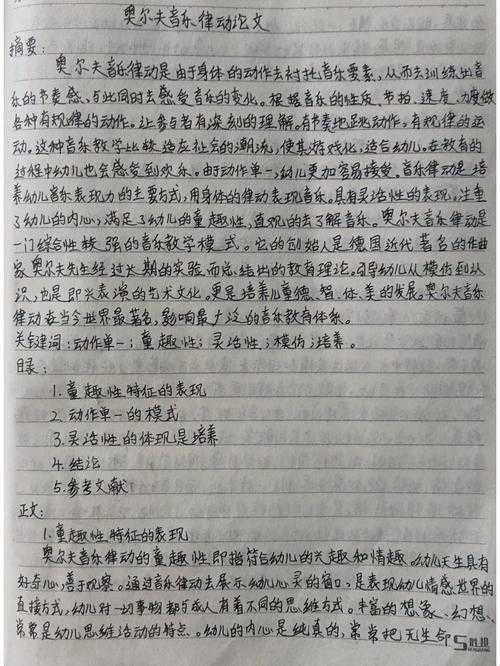 奥尔夫音乐律动论文
摘要:
奥尔夫音乐律动是由于身体的动作去衬托音乐要素,从而去训练出音
乐的节奏感,与此同时去感受音乐的变化。根据音乐的性质、节拍、速度、力度做
各种有规律的动作。让参与者有深刻的理解。有节奏地跳动作,有规律的运
动。这种音乐教学比较适应社会的潮流,使其游戏化,适合幼儿。在教育的
过程中幼儿也会感受到欢乐。由于动作单一,幼儿更加容易接受。音乐律动是培
养幼儿音乐表现力的主要方式,用身体的律动表现音乐。具有灵活性的表现,注重
了幼儿的内心,满足了幼儿的童趣性,直观的去了解音乐。奥尔夫音乐律动是
一门综合性较强的音乐教学模式。它的创始人是德国近代著名的作曲
家奥尔夫先生经过长期的实验而总结出的教育理论。引导幼儿从模仿到认
识,也是即兴表演的艺术文化。更是培养儿童德、智、体、美的发展。奥尔夫音乐
律动在当今世界最著名,影响最广泛的音乐教育体系。
关键词:动作单一;童趣性;灵活性;模仿;培养。
目录:
1.童趣性特征的表现
2.动作单一的模式
3.灵活性的体现是培养
4.结论
5.参考文献
正文:
1.童趣性特征的表现
奥尔夫音乐律动的童趣性即指符合幼儿的兴趣和情趣。幼儿天生具有
好奇心,善于观察。通过音乐律动去展示幼儿心灵的窗口,是表现幼儿情感世界的
直接方式,幼儿对一切事物都与成人有着不同的思维方式。丰富的想象、幻想、
常常是幼儿思维活动的特点。幼儿的内心是纯真的,常常把无生命